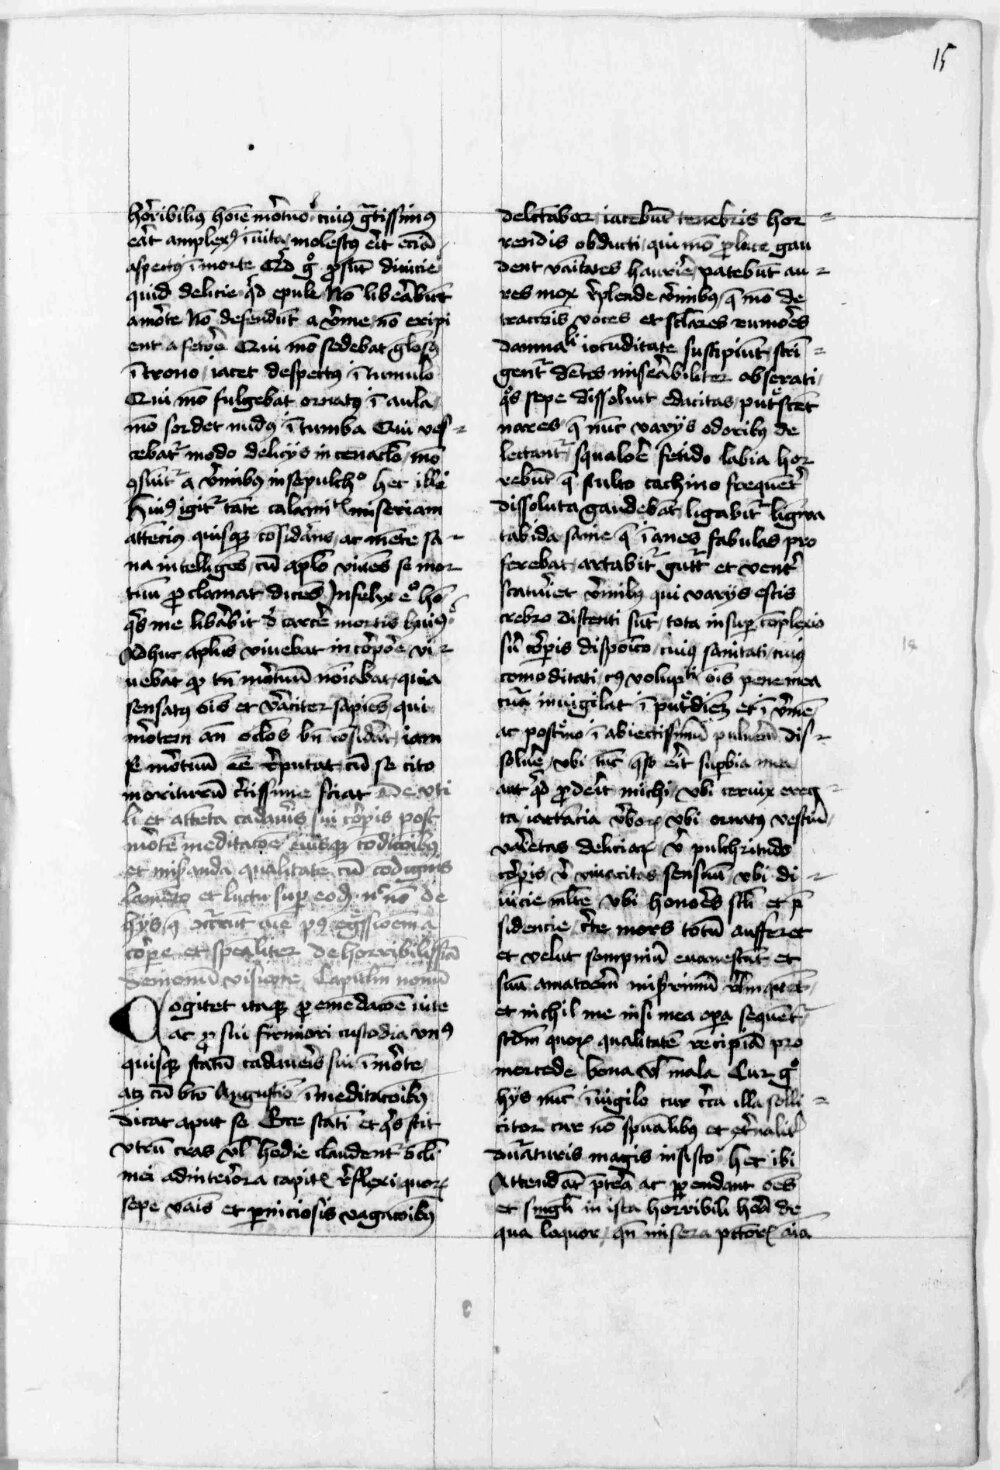 15
horribilius hoie mortuo cuius gratissimus
erat amplexus in vita molestus erit eciam
aspectus in morte Quid ergo prosunt divicie
quid delicie quid epule Non liberabunt
a morte non defendunt a verme non eripi
ent a fetore Qui modo sedebat gloriosus
in trono iacet despectus in tumulo
Qui modo fulgebat ornatus in aula
modo sordet nudus in tumba Qui ves=
cebatur modo deliciis in cenaculo modo
consumitur a vermibus in sepulchro hec ille
Huius igitur tante calamitatis miseriam
attencius quisque considerans ac mente sa=
na intelligens cum apostolo vivens se mor
tuum proclamat dicens Infelix ego homo
quis me liberabit de carcere mortis huius
Adhuc apostolus vivebat in corpore vi=
vebat quia tamen mortuum nominabat quia
sensatus omnis et veraciter sapiens qui
mortem ante oculos bene considerat iam
se mortuum esse reputat cum se cito
moriturum certissime sciat De uti
li et attenta cadaveris sui corporis post
mortem meditacione eiusque condicionibus
et miseranda qualitate cum condignis
lamento et luctu super eodem necnon de
hiis que occurrunt anime post egressionem a
corpore et specialiter de horribilissima
demonum visione Capitulum nonum
Cogitet itaque pro emendacione vite
ac pro sui firmiori custodia unus
quisque statum cadaveris sui in morte
ac cum beato Augustino in meditacionibus
dicat aput se Ecce statim et quis scit
utrum cras vel hodie claudentur oculi
mei ad interiora capitis reflexi quorum
sepe vanis et perniciosis vagacionibus
delectabor iacebunt tenebris hor=
rendis obducti qui modo pro luce gau
dent vanitates haurire patebunt au=
res mox replende vermibus que modo de
tractionis voces et seculares rumores
damnabili iocunditate suscipiunt stri=
gentur dentes miserabiliter obserati
quos sepe dissolvit edacitas putrescent
nares que nunc variis odoribus de
lectantur squalore fetido labia hor
rebunt que stulto cachino frequenter
dissoluta gaudebant ligabitur lingua
tabida sanie que inanes fabulas pro
ferebat artabitur guttur et venter
scaturiet vermibus qui variis escis
crebro distenti sunt tota insuper complexio
sui corporis disposicio cuius sanitati cuius
comoditati cuius voluptati omnis pene mea
cura invigilat in putredinem et in vermem
ac postremo in abiectissimum pulverem dis=
solvetur ubi tunc queso erit superbia mea
aut quid proderit michi ubi cervix erec=
ta iactancia verborum ubi ornatus vestium
varietas deliciarum ubi pulchritudo
corporis ubi vivacitas sensuum ubi di=
vicie multe ubi honores seculi et pre
sidencie certe mors totum aufferet
et velut sompnium evanescunt et
suum amatorem miserrimum relinquent
et nichil me nisi mea opera sequentur
secundum quorum qualitatem recipiam pro
mercede bona vel mala Cur ergo
hiis nunc invigilo cur circa illa solli=
citor cur non spiritualibus et eternaliter
duraturis magis insisto hec ibi
Attendant preterea ac perpendant omnes
et singuli in ista horribili hora de
qua loquor quam misera peccatorum anima